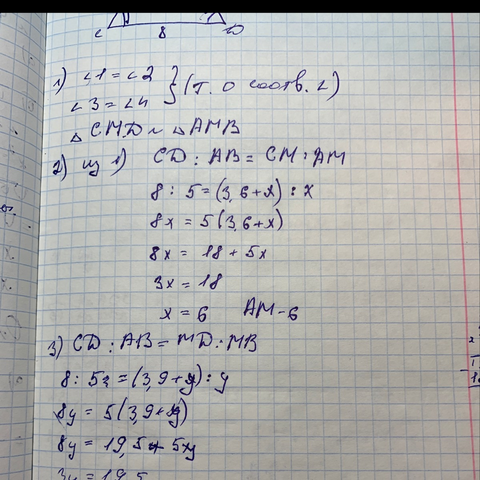 C 8 D
1) ∠1 = ∠2 } (т. о соотв. ∠)
∠3 = ∠4
△CMD ~ △AMB
2) из 1) CD : AB = CM : AM
8 : 5 = (3,6 + x) : x
8x = 5(3,6 + x)
8x = 18 + 5x
3x = 18
x = 6 AM - 6
3) CD : AB = MD : MB
8 : 5 = (3,9 + y) : y
8y = 5(3,9 + y)
8y = 19,5 + 5y
3y = 19,5